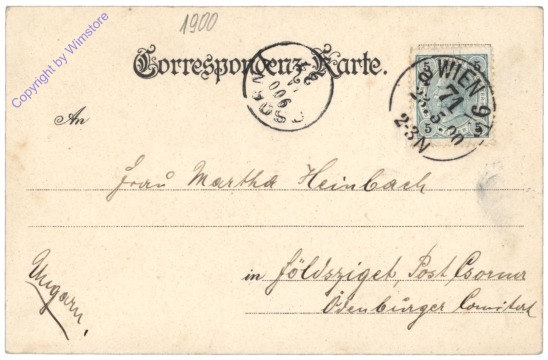 1900
Copyright by Wimstore
Correspondenz-Karte.
5 5
5 5
WIEN 9
71
5.00
2-3N
An
Frau Martha Heinbach
in Földsziget, Post Csorna
Ödenburger Comitat
Ungarn.